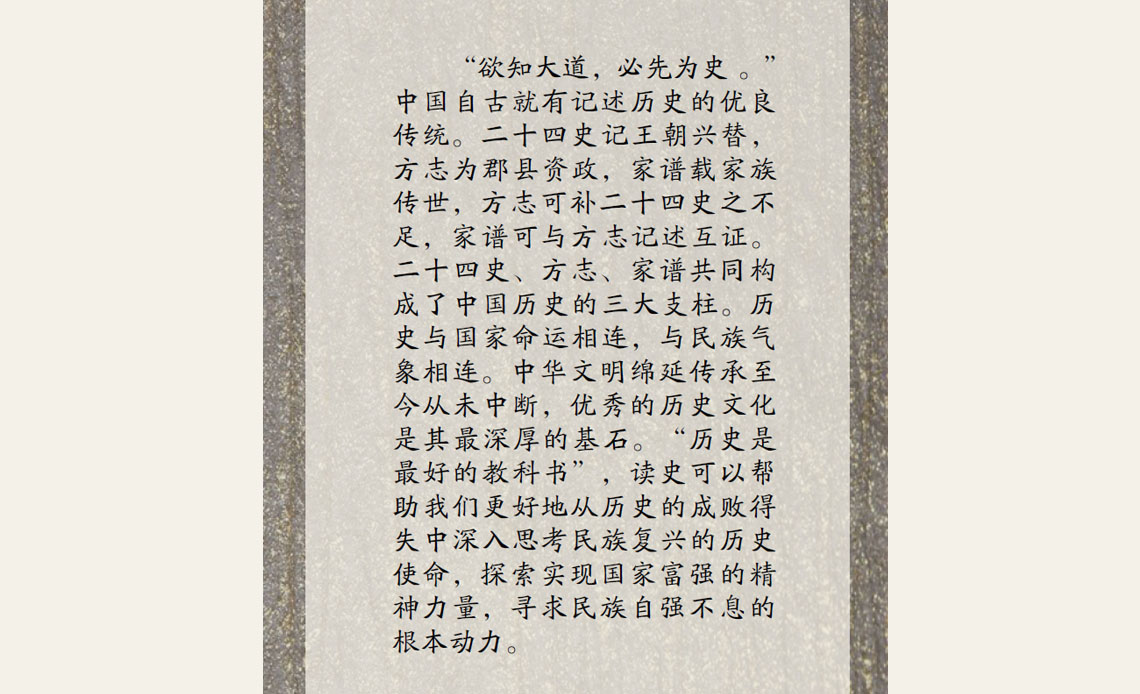 “欲知大道，必先为史 。”
中国自古就有记述历史的优良
传统。二十四史记王朝兴替，
方志为郡县资政，家谱载家族
传世，方志可补二十四史之不
足，家谱可与方志记述互证。
二十四史、方志、家谱共同构
成了中国历史的三大支柱。历
史与国家命运相连，与民族气
象相连。中华文明绵延传承至
今从未中断，优秀的历史文化
是其最深厚的基石。“历史是
最好的教科书”，读史可以帮
助我们更好地从历史的成败得
失中深入思考民族复兴的历史
使命，探索实现国家富强的精
神力量，寻求民族自强不息的
根本动力。